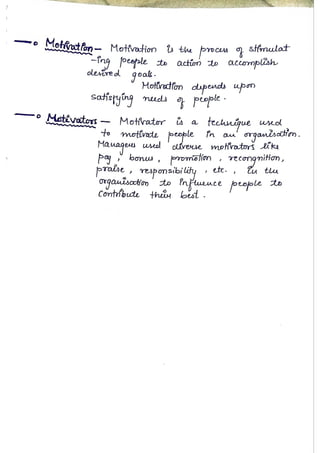 Motivation - Motivation is the process of stimulat
-ing people to action to accomplish
desired goals.
Motivation depends upon
satisfying needs of people.
Motivators - Motivator is a technique used
to motivate people in an organisation.
Managers used diverse motivators like
pay, bonus, promotion, recongnition,
praise, responsibility, etc., in the
organisation to influence people to
contribute their best.